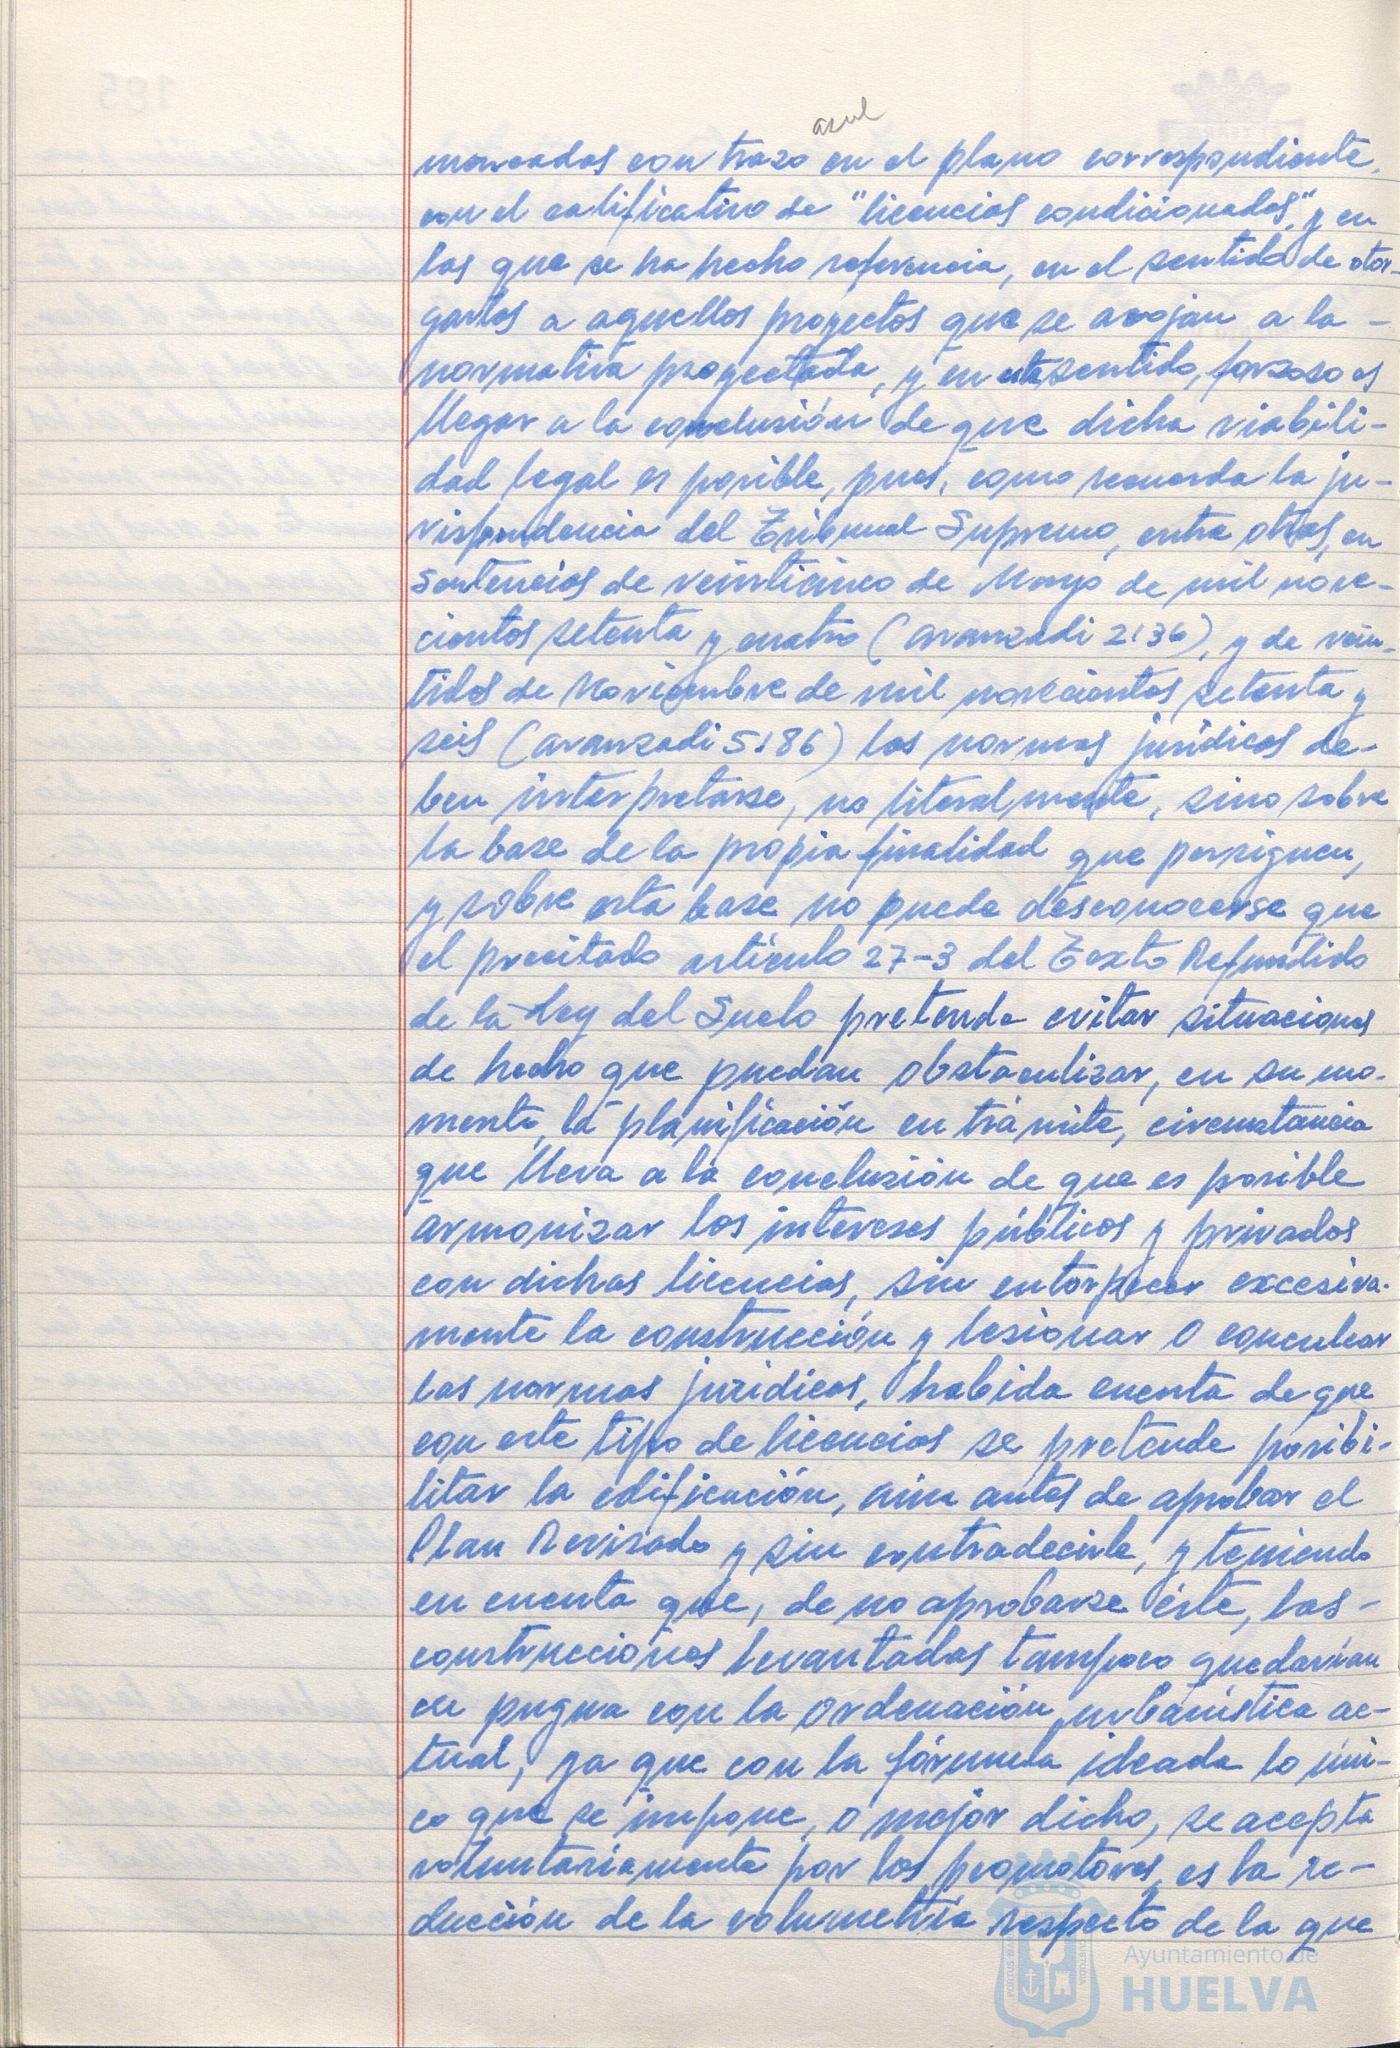 azul
marcadas con trazo en el plano correspondiente,
con el calificativo de "licencias condicionadas", y en
las que se ha hecho referencia, en el sentido de otor-
garlas a aquellos proyectos que se acojan a la -
normativa proyectada, y en este sentido, forzoso es
llegar a la conclusión de que dicha viabili-
dad legal es posible, pues, como recuerda la ju-
risprudencia del Tribunal Supremo, entre otras, en
Sentencias de veinticinco de Mayo de mil nove-
cientos setenta y cuatro (avanzadi 2136), y de vein-
tidos de Noviembre de mil novecientos setenta y
seis (avanzadi 5186) las normas jurídicas de-
ben interpretarse, no literalmente, sino sobre
la base de la propia finalidad que persiguen,
y sobre esta base no puede desconocerse que
el precitado artículo 27-3 del Texto Refundido
de la Ley del Suelo pretende evitar situaciones
de hecho que puedan obstaculizar, en su mo-
mento, la planificación en trámite, circunstancia
que lleva a la conclusión de que es posible
armonizar los intereses públicos y privados
con dichas licencias, sin entorpecer excesiva-
mente la construcción y lesionar o conculcar
las normas jurídicas, habida cuenta de que
con este tipo de licencias se pretende posibi-
litar la edificación, aún antes de aprobar el
Plan Revisado y sin contradecirle, y teniendo
en cuenta que, de no aprobarse éste, las -
construcciones levantadas tampoco quedarían
en pugna con la ordenación urbanística ac-
tual, ya que con la fórmula ideada lo úni-
co que se impone, o mejor dicho, se acepta
voluntariamente por los promotores, es la re-
ducción de la volumetría respecto de la que
Ayuntamiento de
HUELVA